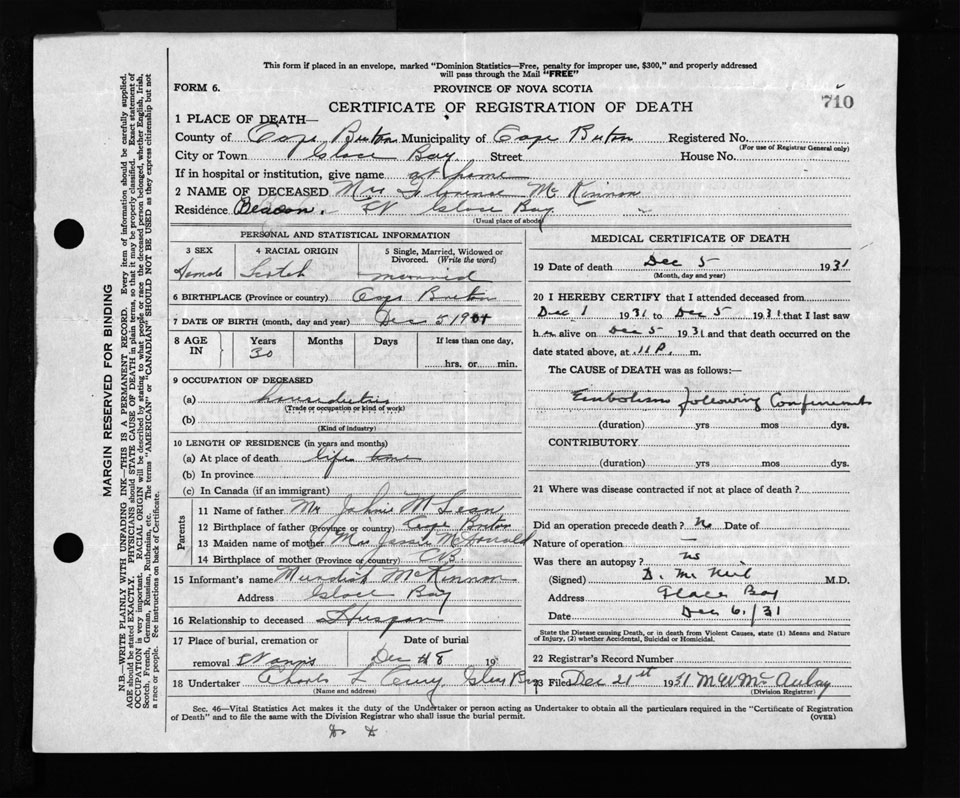 This form if placed in an envelope, marked "Dominion Statistics—Free, penalty for improper use, $300," and properly addressed
will pass through the Mail "FREE"
FORM 6.
PROVINCE OF NOVA SCOTIA
710
CERTIFICATE OF REGISTRATION OF DEATH
1 PLACE OF DEATH—
County of Cape Breton Municipality of Cape Breton Registered No.
(For use of Registrar General only)
City or Town Glace Bay Street House No.
If in hospital or institution, give name at home
2 NAME OF DECEASED Mrs Florence McKinnon
Residence Beacon. St Glace Bay
(Usual place of abode)
PERSONAL AND STATISTICAL INFORMATION
3 SEX 4 RACIAL ORIGIN 5 Single, Married, Widowed or Divorced. (Write the word)
Female Scotch married
6 BIRTHPLACE (Province or country) Cape Breton
7 DATE OF BIRTH (month, day and year) Dec 5 1901
8 AGE IN Years Months Days If less than one day,
30 hrs. or min.
9 OCCUPATION OF DECEASED
(a) houseduties
(Trade or occupation or kind of work)
(b)
(Kind of industry)
10 LENGTH OF RESIDENCE (in years and months)
(a) At place of death life time
(b) In province
(c) In Canada (if an immigrant)
Parents
11 Name of father Mr Johnie McLean
12 Birthplace of father (Province or country) Cape Breton
13 Maiden name of mother Mrs Jessie McDonald
14 Birthplace of mother (Province or country) CB
15 Informant's name McKinnon
Address Glace Bay
16 Relationship to deceased Huspan
17 Place of burial, cremation or removal Date of burial
Dec 8 19
18 Undertaker Glace Bay
(Name and address)
MEDICAL CERTIFICATE OF DEATH
19 Date of death Dec 5 1931
(Month, day and year)
20 I HEREBY CERTIFY that I attended deceased from
Dec 1 1931 to Dec 5 1931 that I last saw
her alive on Dec 5 1931 and that death occurred on
date stated above, at 11 P. m.
The CAUSE of DEATH was as follows:—
Embolism following Confinement
(duration) yrs mos dys.
CONTRIBUTORY
(duration) yrs mos dys.
21 Where was disease contracted if not at place of death?
Did an operation precede death? No Date of
Nature of operation —
Was there an autopsy? No
(Signed) D. McNeil M.D.
Address Glace Bay
Date Dec 6/31
State the Disease causing Death, or in death from Violent Causes, state (1) Means and Nature
of Injury, (2) whether Accidental, Suicidal or Homicidal.
22 Registrar's Record Number
23 Filed Dec 21st 1931 M W McAulay
(Division Registrar)
Sec. 46—Vital Statistics Act makes it the duty of the Undertaker or person acting as Undertaker to obtain all the particulars required in the "Certificate of Registration
of Death" and to file the same with the Division Registrar who shall issue the burial permit.
(OVER)
MARGIN RESERVED FOR BINDING
N.B.—WRITE PLAINLY WITH UNFADING INK—THIS IS A PERMANENT RECORD. Every item of information should be carefully supplied.
AGE should be stated EXACTLY. PHYSICIANS should STATE CAUSE OF DEATH in plain terms, so that it may be properly classified. Exact statement of
OCCUPATION is very important. RACIAL ORIGIN will be described by stating to what people or race the deceased person belonged, whether English, Irish,
Scotch, French, German, Russian, Ruthenian, etc. The terms "AMERICAN" or "CANADIAN" SHOULD NOT BE USED as they express citizenship but not
a race or people. See instructions on back of Certificate.